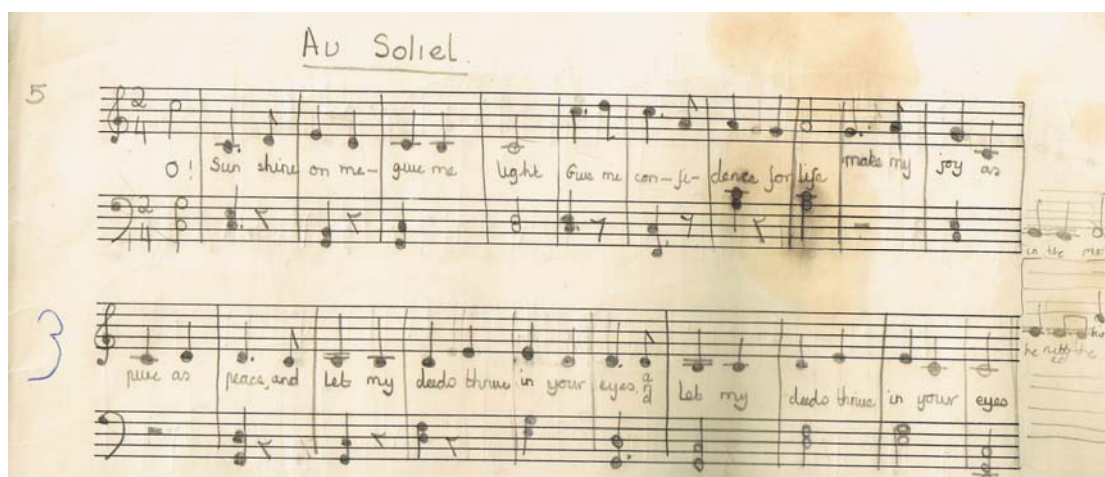 Au Soliel.
5
2 4
O! Sun shine on me- give me light Give me con-fi- dence for life make my joy as
2 4
in the
3
pure as peace, and Let my deeds thrive in your eyes, and Let my deeds thrive in your eyes
he the